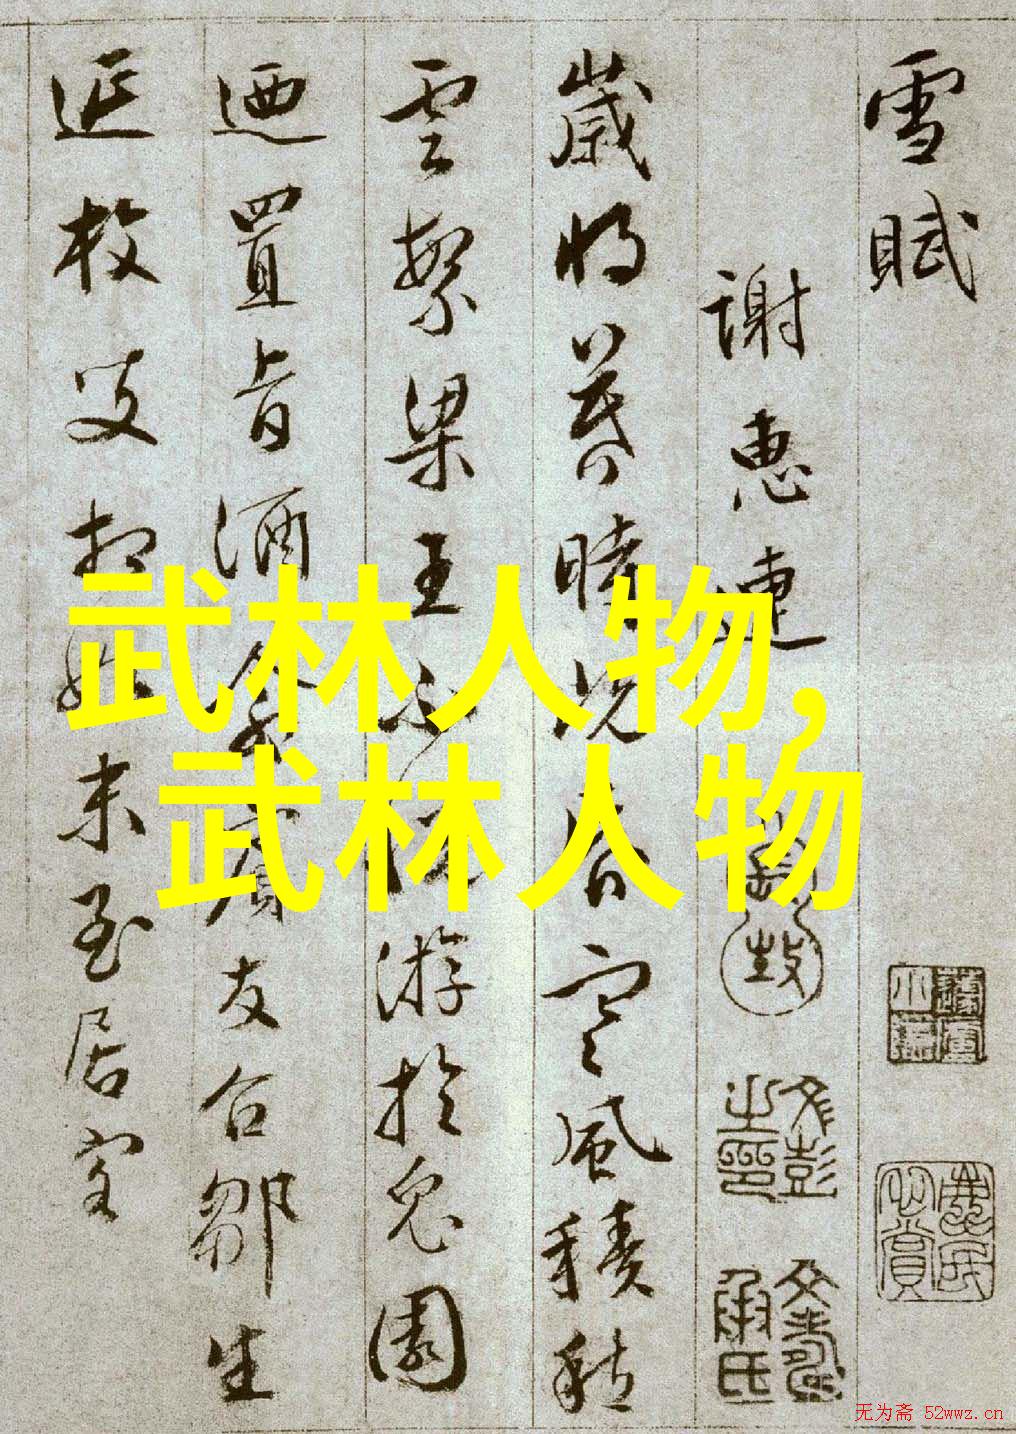 雪賦
謝惠連
歲將暮時既昏寒風積愁
雲繁梁王不悅游於兔園
迺置旨酒命賓友召鄒生
延枚叟相如末至居客
武林人物,
武林人物
文彭之印
无为斋 52wwz.cn